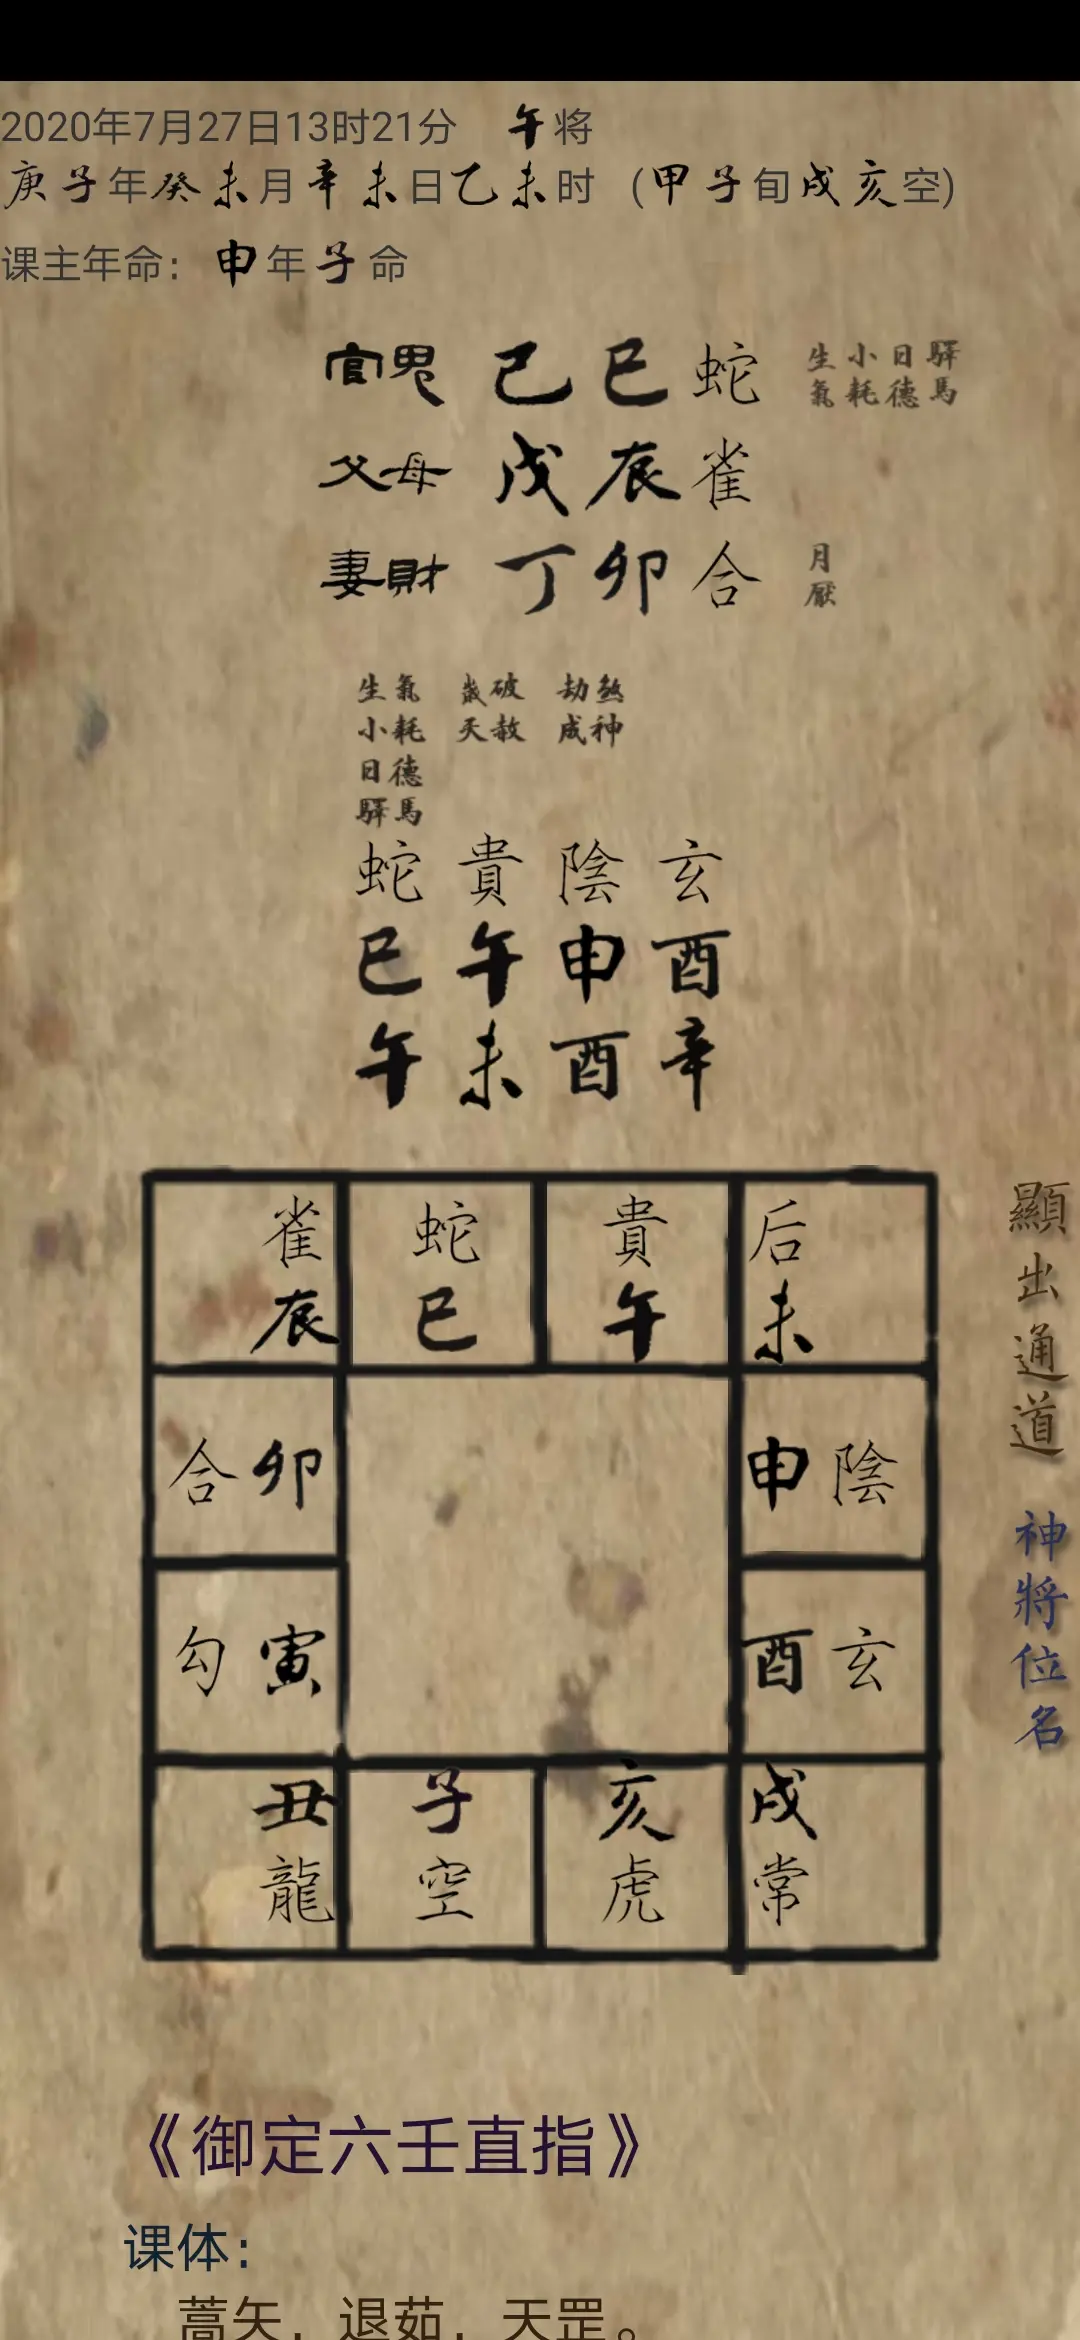 2020年7月27日13时21分 午将
庚子年癸未月辛未日乙未时 (甲子旬戌亥空)
课主年命：申年子命
官鬼 己巳 蛇 生氣 小耗 日德 驛馬
父母 戊辰 雀
妻財 丁卯 合 月厭
生氣 歲破 劫煞
小耗 天赦 成神
日德
驛馬
蛇 貴 陰 玄
巳 午 申 酉
午 未 酉 辛
雀 蛇 貴 后
辰 巳 午 未
合 卯 申 陰
勾 寅 酉 玄
丑 子 亥 戌
龍 空 虎 常
顯出通道 神將位名
《御定六壬直指》
课体：
蒿矢，退茹，天罡。